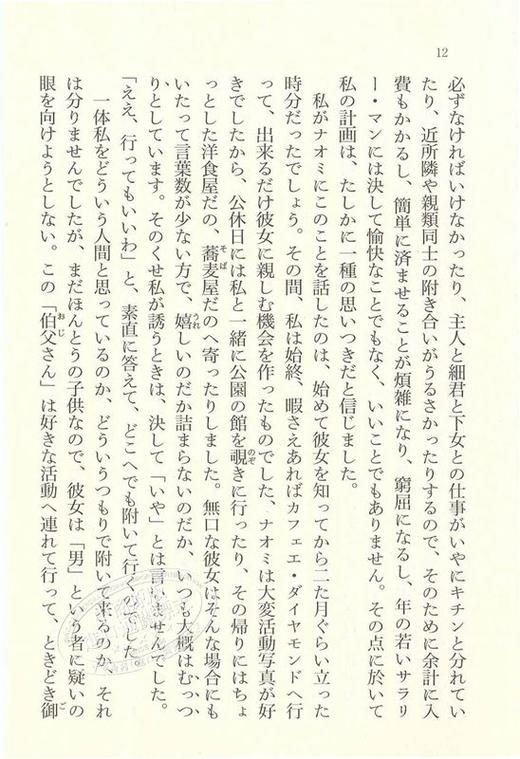 12
必ずなければいけなかったり、主人と細君と下女との仕事がいやにキチンと分れてい
たり、近所隣や親類同士の附き合いがうるさかったりするので、そのために余計に入
費もかかるし、簡単に済ませることが煩雑になり、窮屈になるし、年の若いサラリ
ー・マンには決して愉快なことでもなく、いいことでもありません。その点に於いて
私の計画は、たしかに一種の思いつきだと信じました。
私がナオミにこのことを話したのは、始めて彼女を知ってから二た月ぐらい立った
時分だったでしょう。その間、私は始終、暇さえあればカフェエ・ダイヤモンドへ行
って、出来るだけ彼女に親しむ機会を作ったものでした。ナオミは大変活動写真が好
きでしたから、公休日には私と一緒に公園の館を覗きに行ったり、その帰りにはちょ
っとした洋食屋だの、蕎麦屋だのへ寄ったりしました。無口な彼女はそんな場合にも
いたって言葉数が少ない方で、嬉しいのだか詰まらないのだか、いつも大概はむっつ
りとしています。そのくせ私が誘うときは、決して「いや」とは言いませんでした。
「ええ、行ってもいいわ」と、素直に答えて、どこへでも附いて行くのでした。
一体私をどういう人間と思っているのか、どういうつもりで附いて来るのか、それ
は分りませんでしたが、まだほんとうの子供なので、彼女は「男」という者に疑いの
眼を向けようとしない。この「伯父さん」は好きな活動へ連れて行って、ときどき御